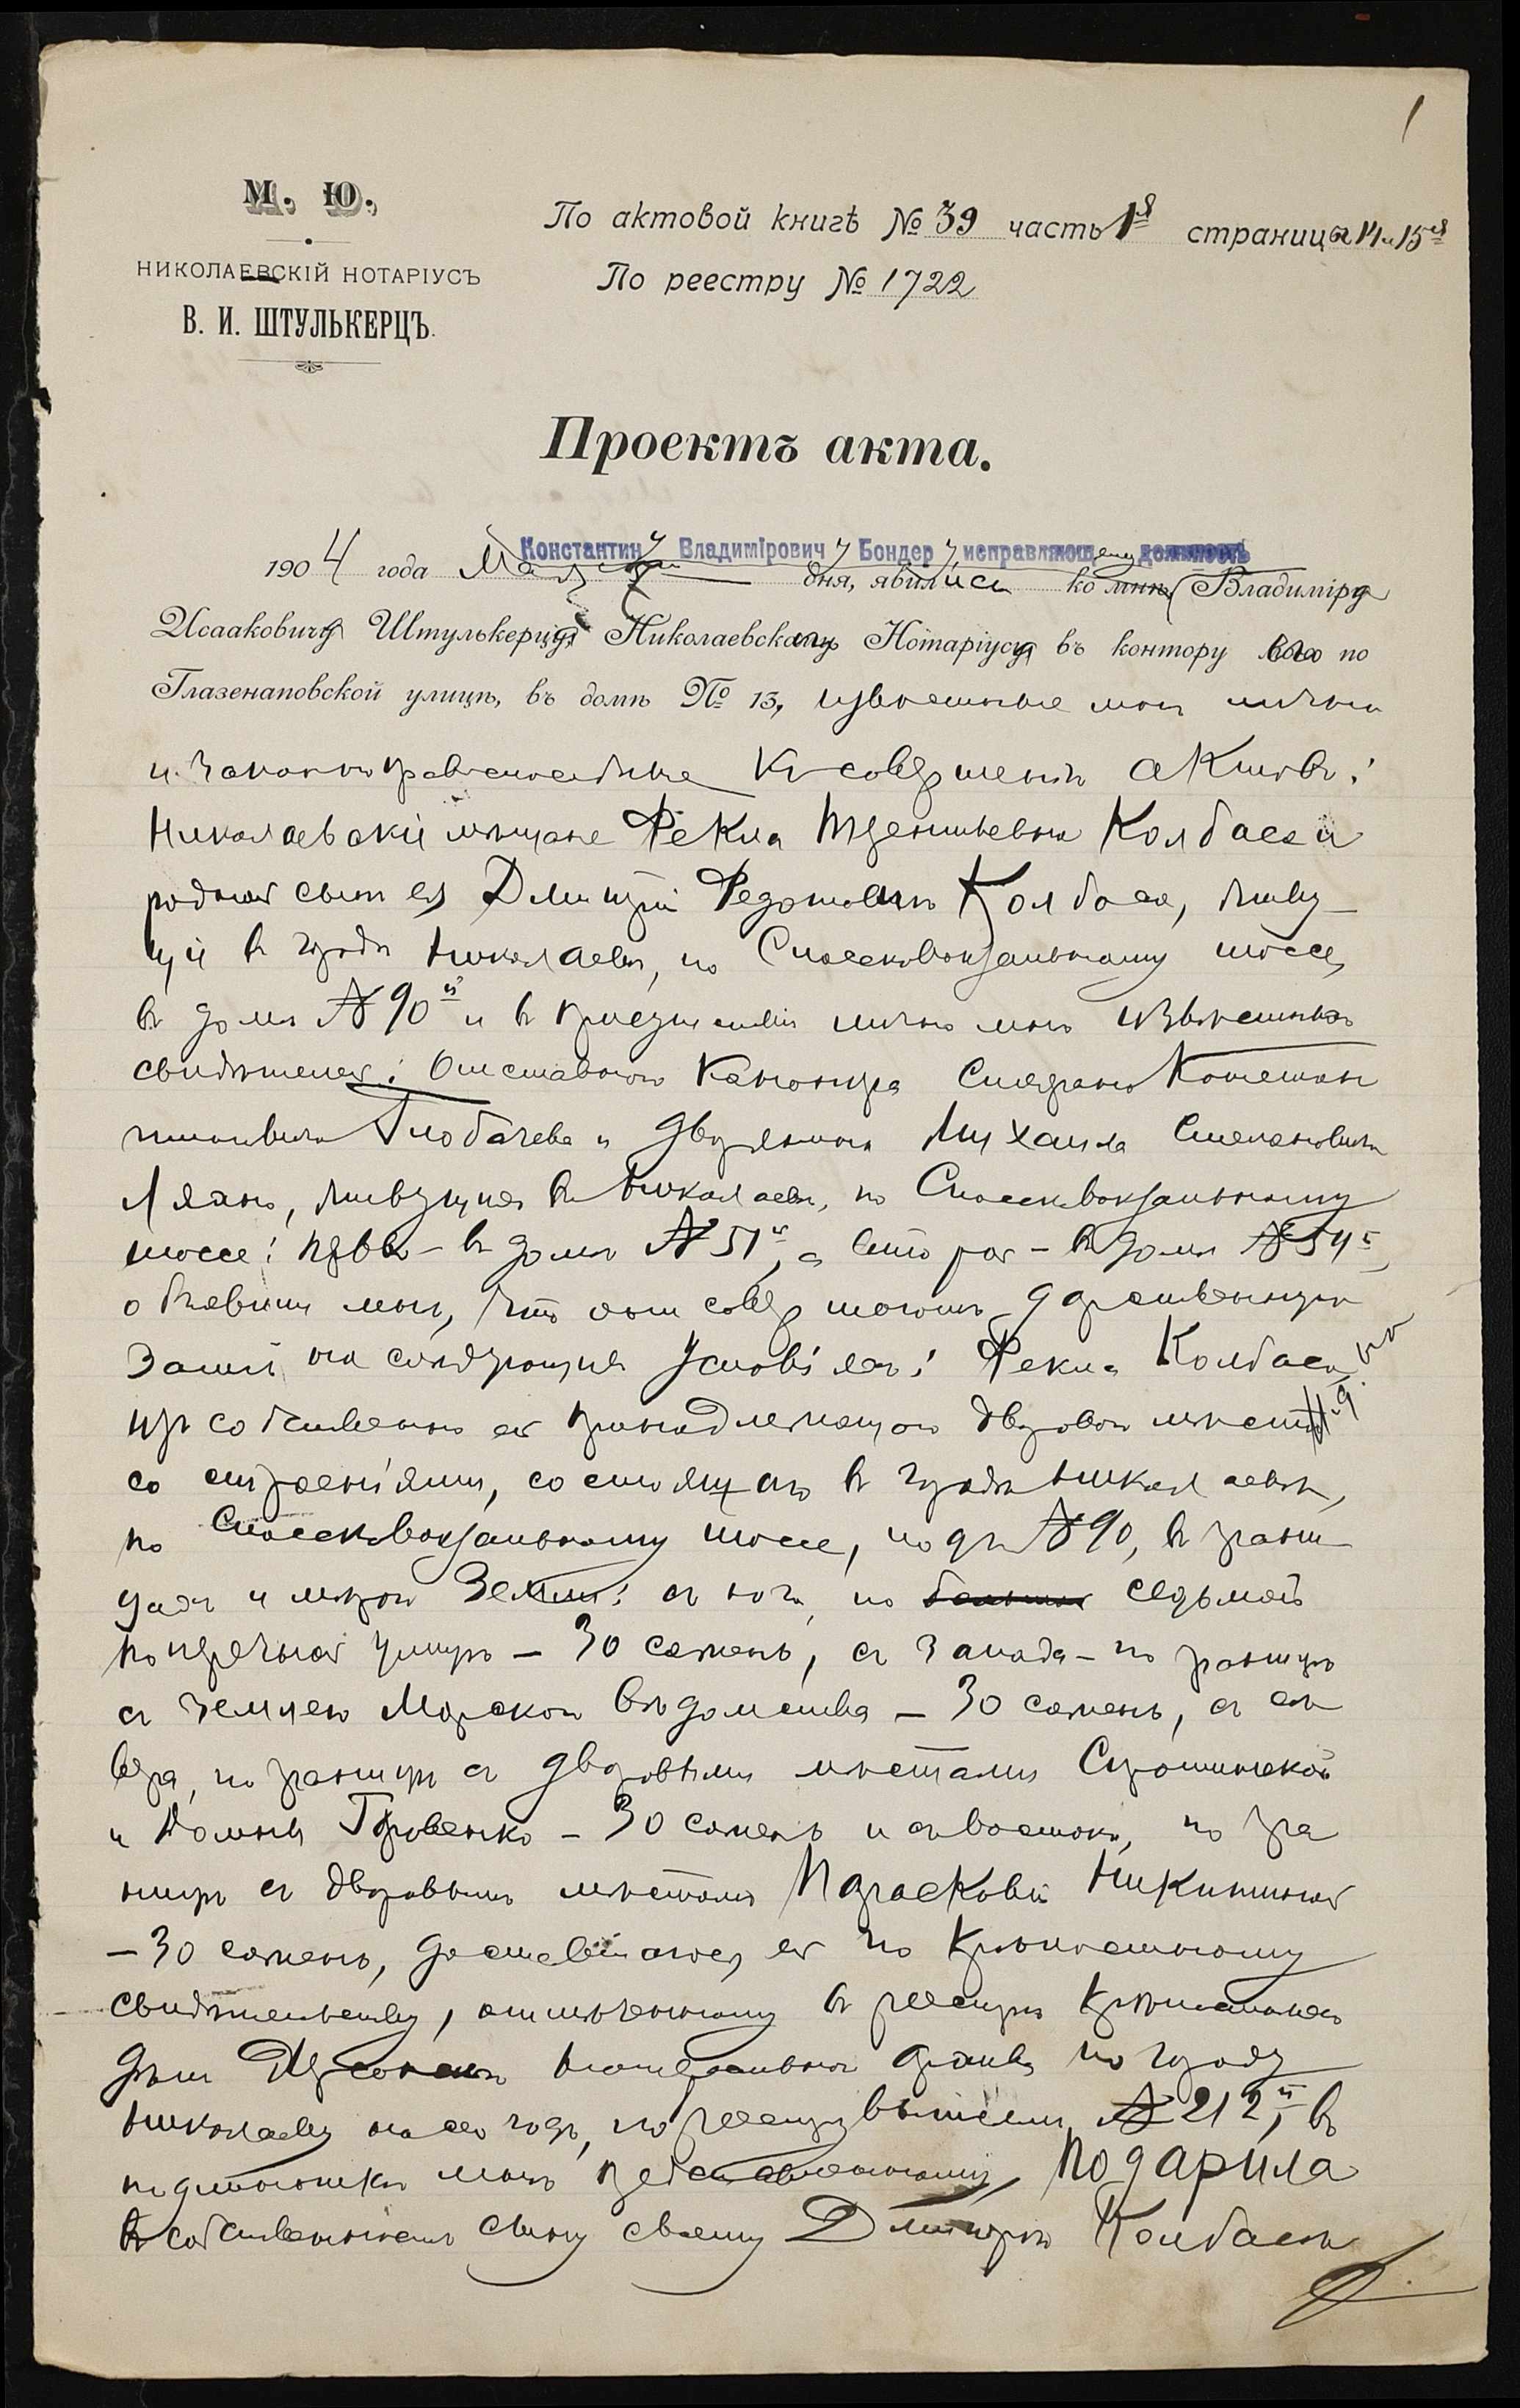 1
М. Ю.
НИКОЛАЕВСКІЙ НОТАРІУСЪ
В. И. ШТУЛЬКЕРЦЪ.
По актовой книгѣ № 39 часть 1я страницы 14 и 15я
По реестру № 1722
Проектъ акта.
Константину Владимірович у Бондер у, исправляющему должность
1904 года Мая дня, явились ко мнѣ Владиміру
Исааковичу Штулькерцу Николаевскому Нотаріусу въ контору его по
Глазенаповской улицѣ, въ домѣ № 13, извѣстные мнѣ лично
и законно правоспособные къ совершенію актовъ:
Николаевскіе мѣщане Фекла Терентьевна Колбаса и
родной сынъ ея Дмитрій Федотовичъ Колбаса, живу-
щій въ городѣ Николаевѣ, по Спассковокзальному шоссе,
въ домѣ № 90й и въ присутствіи лично мнѣ извѣстныхъ
свидѣтелей: Отставного Канонира Степана Константи
новича Глобачева и дворянина Михаила Степановича
живущихъ въ Николаевѣ, по Спассковокзальному
шоссе: первый - въ домѣ № 51й, а второй - въ домѣ № 54й
объявили мнѣ, что они совершаютъ дарственную
запись на слѣдующихъ условіяхъ: Фекла Колбаса
изъ собственно ей принадлежащаго двороваго мѣста
со строеніями, состоящаго въ городѣ Николаевѣ,
по Спассковокзальному шоссе, подъ № 90, въ грани
цахъ и мѣрою земли: съ юга, по седьмой
поперечной улицѣ - 30 сажень, съ запада - по границѣ
съ землею Морского Вѣдомства - 30 сажень, съ сѣ
вера, по границѣ съ дворовыми мѣстами
и Домны - 30 сажень и съ востока, по гра
ницѣ съ дворовымъ мѣстомъ Парасковіи Никитиной
- 30 сажень, доставшагося ей по крѣпостному
свидѣтельству, отмѣченному въ реестрѣ крѣпостныхъ
дѣлъ Херсонскаго Нотаріальнаго архива по городу
Николаеву на сей годъ, № 212й, въ
подлинникѣ мнѣ представленному, подарила
въ собственность сыну своему Дмитрію Колбасѣ